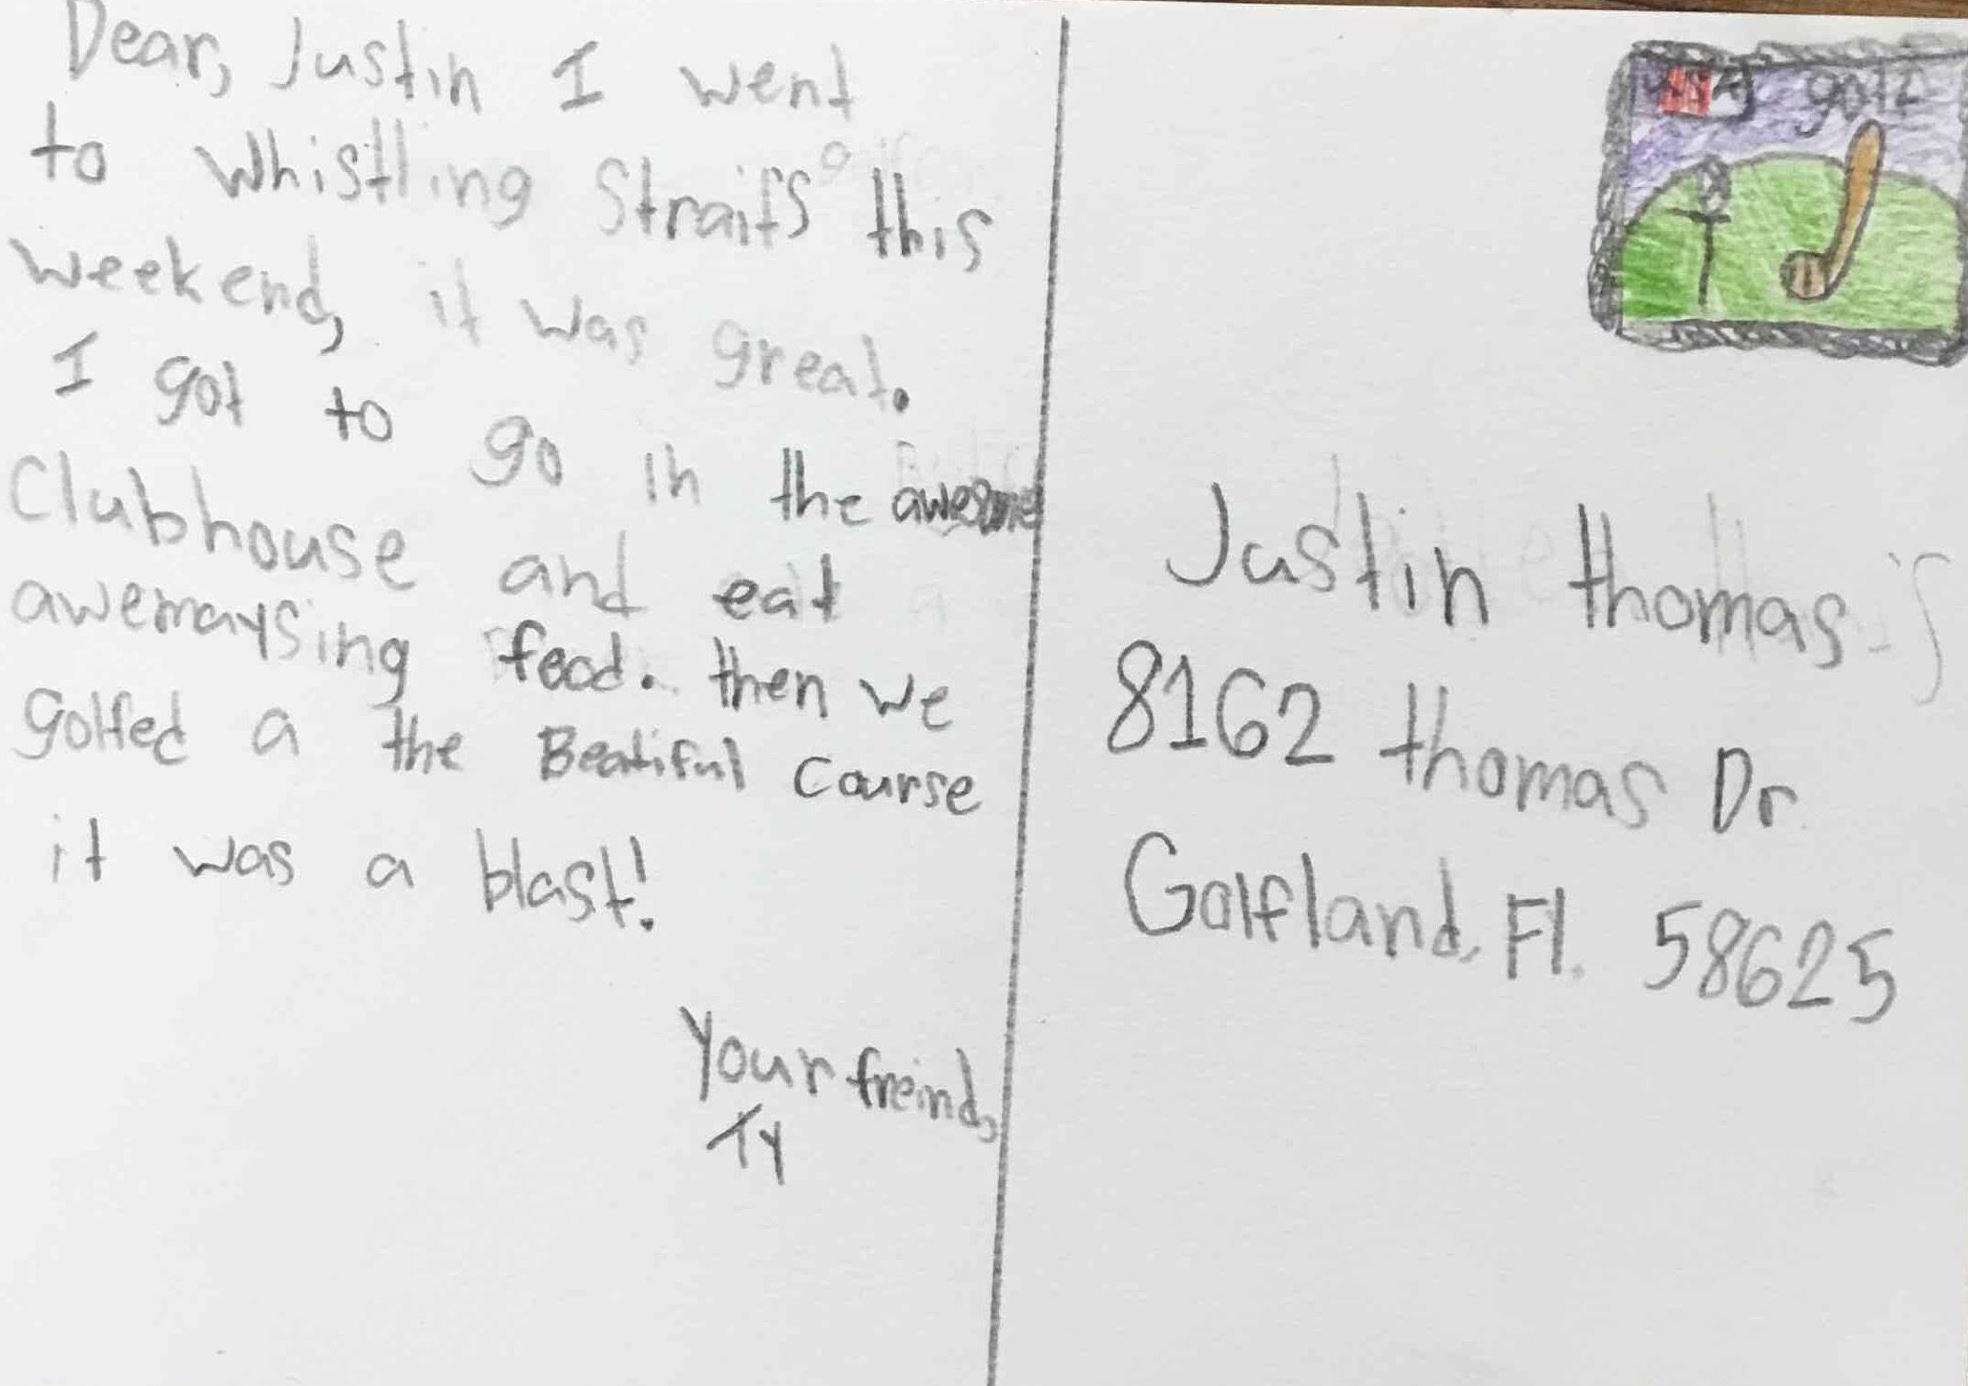 Dear, Justin I went
to whistling Straits this
weekend, it was great.
I got to go in the awesome
Clubhouse and eat
awemaysing food. then we
golfed a the Beatiful course
it was a blast!
Your freind,
Ty
USA golf
Justin thomas
8162 thomas Dr
Golfland, Fl. 58625